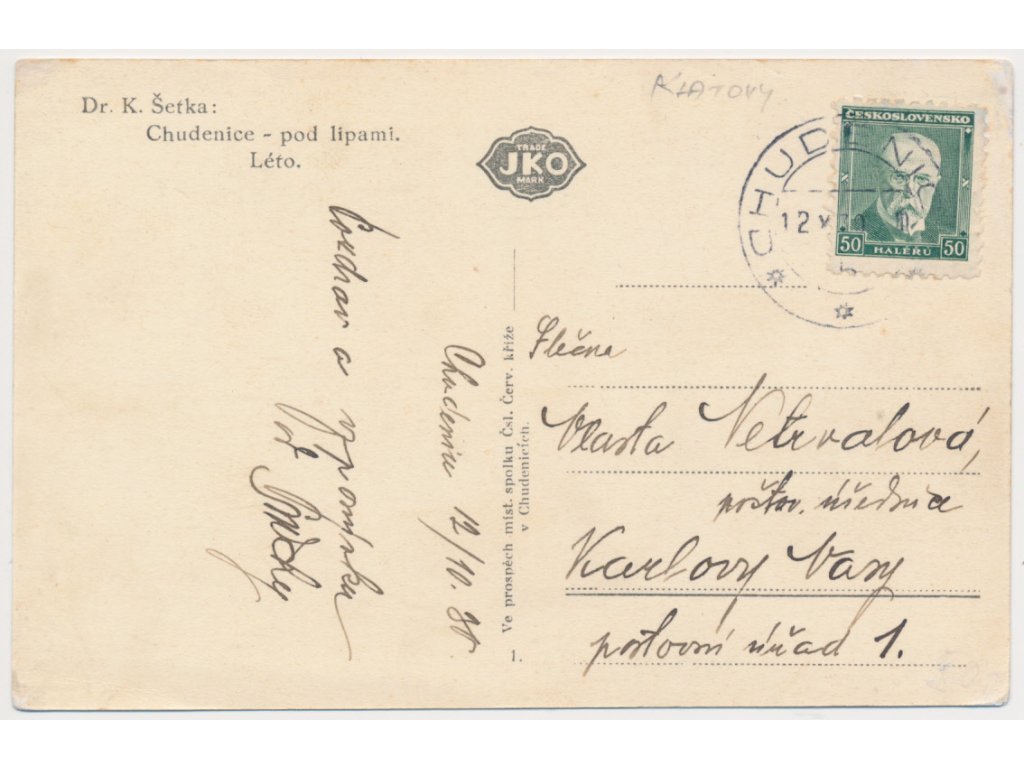 Dr. K. Šetka:
Chudenice - pod lipami.
Léto.
KLATOVY
TRADE
JKO
MARK
ČESKOSLOVENSKO
50 HALÉŘŮ 50
CHUDENICE
12 X 30
a vzpomínku
Chudenice 12/10. 30
Ve prospěch míst. spolku Čsl. Červ. kříže
v Chudenicích.
1.
Slečna
Vlasta Netrvalová,
poštov. úřednice
Karlovy Vary
poštovní úřad 1.
50